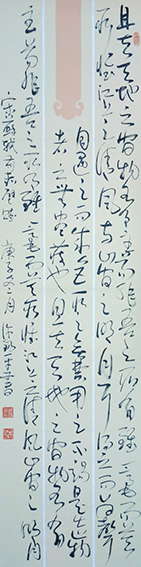 且夫天地之間物各有主苟非吾之所有雖一毫而莫
取惟江上之清風与山間之明月耳得之而為聲
目遇之而成色取之無禁用之不竭是造物
者之無盡藏也且夫天地之間物各有
主苟非吾之所有雖一毫而莫取惟江上之清風山間之明月
宋蘇軾前赤壁賦 庚子 月